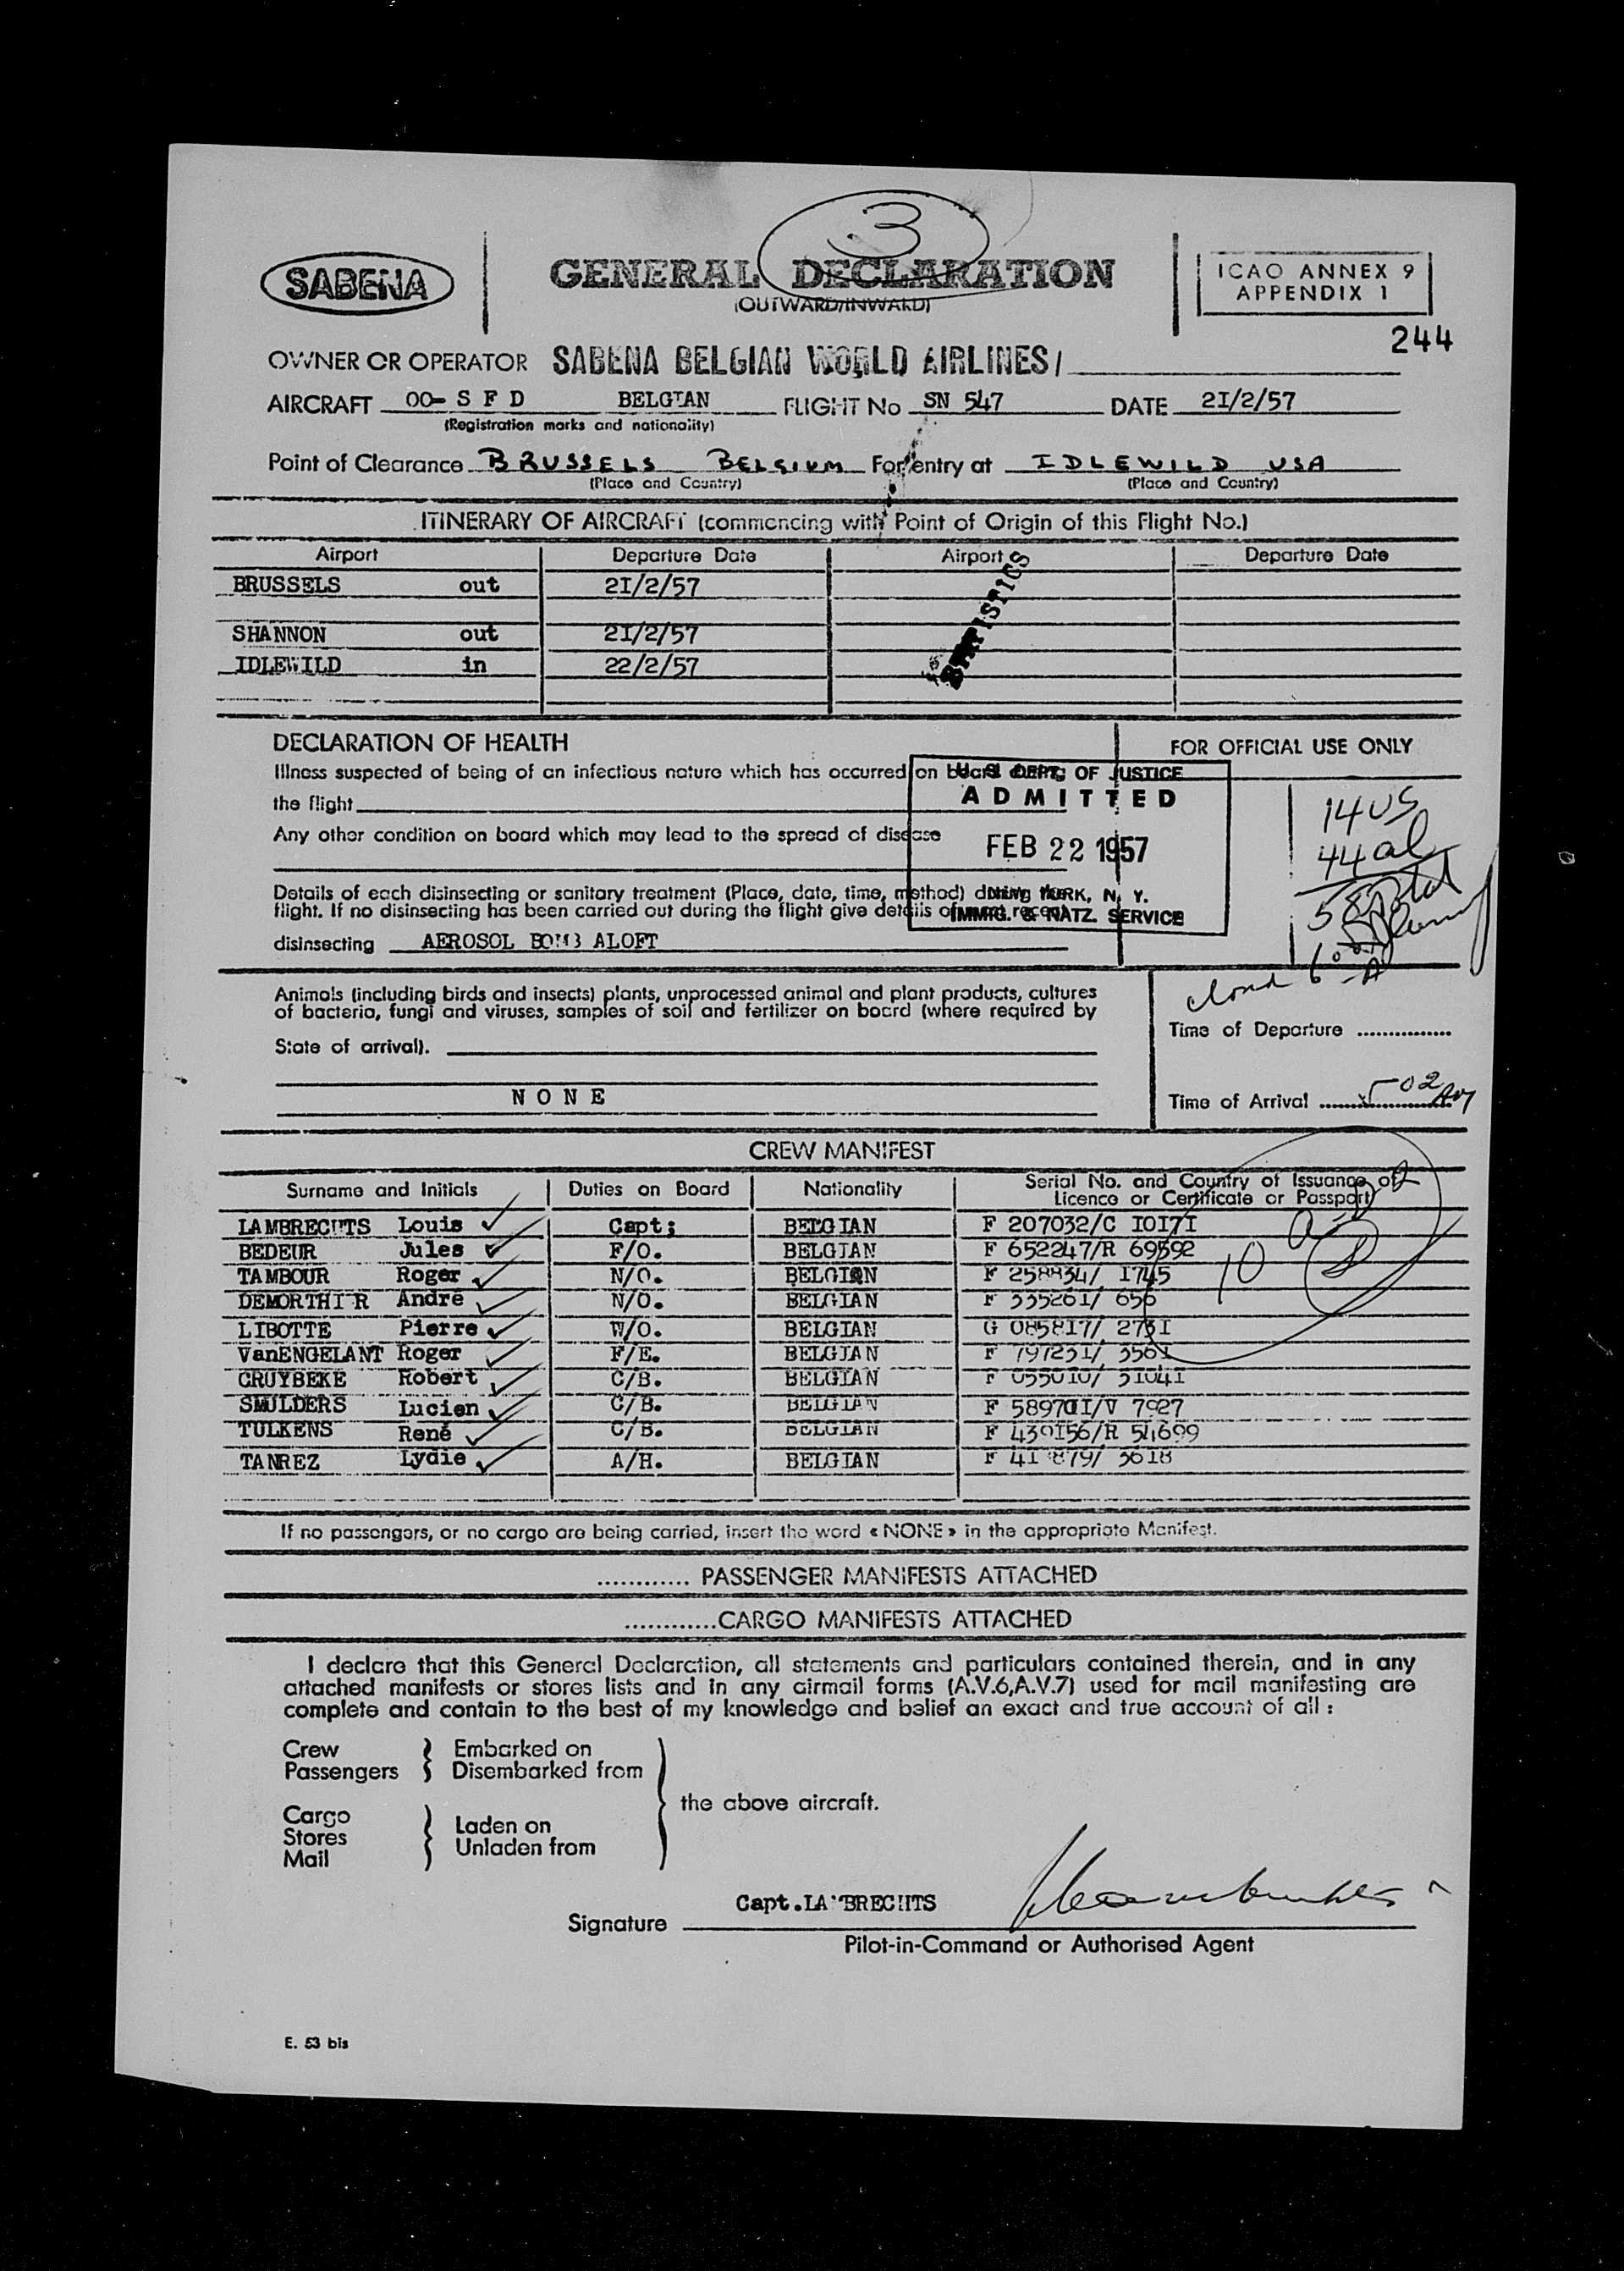 3
SABENA
GENERAL DECLARATION
(OUTWARD/INWARD)
ICAO ANNEX 9
APPENDIX 1
244
OWNER OR OPERATOR SABENA BELGIAN WORLD AIRLINES/
AIRCRAFT OO- S F D BELGIAN FLIGHT No SN 547 DATE 2I/2/57
(Registration marks and nationality)
Point of Clearance BRUSSELS BELGIUM For entry at IDLEWILD USA
(Place and Country) (Place and Country)
ITINERARY OF AIRCRAFT (commencing with Point of Origin of this Flight No.)
Airport Departure Date Airport Departure Date
BRUSSELS out 2I/2/57
SHANNON out 2I/2/57
IDLEWILD in 22/2/57
STATISTICS
DECLARATION OF HEALTH
FOR OFFICIAL USE ONLY
Illness suspected of being of an infectious nature which has occurred on board during
the flight
Any other condition on board which may lead to the spread of disease
Details of each disinsecting or sanitary treatment (Place, date, time, method) during the
flight. If no disinsecting has been carried out during the flight give details of most recent
disinsecting AEROSOL BOMB ALOFT
U.S. DEPT. OF JUSTICE
ADMITTED
FEB 22 1957
NEW YORK, N. Y.
IMMIG. & NATZ. SERVICE
14 US
44 al
58 total
Animals (including birds and insects) plants, unprocessed animal and plant products, cultures
of bacteria, fungi and viruses, samples of soil and fertilizer on board (where required by
State of arrival).
NONE
Time of Departure
Time of Arrival 5 02 AM
CREW MANIFEST
Surname and Initials Duties on Board Nationality Serial No. and Country of Issuance of Licence or Certificate or Passport)
LAMBRECHTS Louis Capt; BELGIAN F 207032/C I0I7I
BEDEUR Jules F/O. BELGIAN F 652247/R 69592
TAMBOUR Roger N/O. BELGIAN F 258834/ I745
DEMORTHIER André N/O. BELGIAN F 335261/ 656
LIBOTTE Pierre W/O. BELGIAN G 085817/ 273I
VanENGELANT Roger F/E. BELGIAN F 797231/
CRUYBEKE Robert C/B. BELGIAN F 055010/ 31041
SMULDERS Lucien C/B. BELGIAN F 58970I/V 7927
TULKENS René C/B. BELGIAN F 430I56/R 54699
TANREZ Lydie A/H. BELGIAN
10
If no passengers, or no cargo are being carried, insert the word « NONE » in the appropriate Manifest.
............ PASSENGER MANIFESTS ATTACHED
............CARGO MANIFESTS ATTACHED
I declare that this General Declaration, all statements and particulars contained therein, and in any
attached manifests or stores lists and in any airmail forms (A.V.6,A.V.7) used for mail manifesting are
complete and contain to the best of my knowledge and belief an exact and true account of all :
Crew Embarked on
Passengers Disembarked from
the above aircraft.
Cargo
Stores Laden on
Mail Unladen from
Capt.LAMBRECHTS
Signature
Pilot-in-Command or Authorised Agent
E. 53 bis